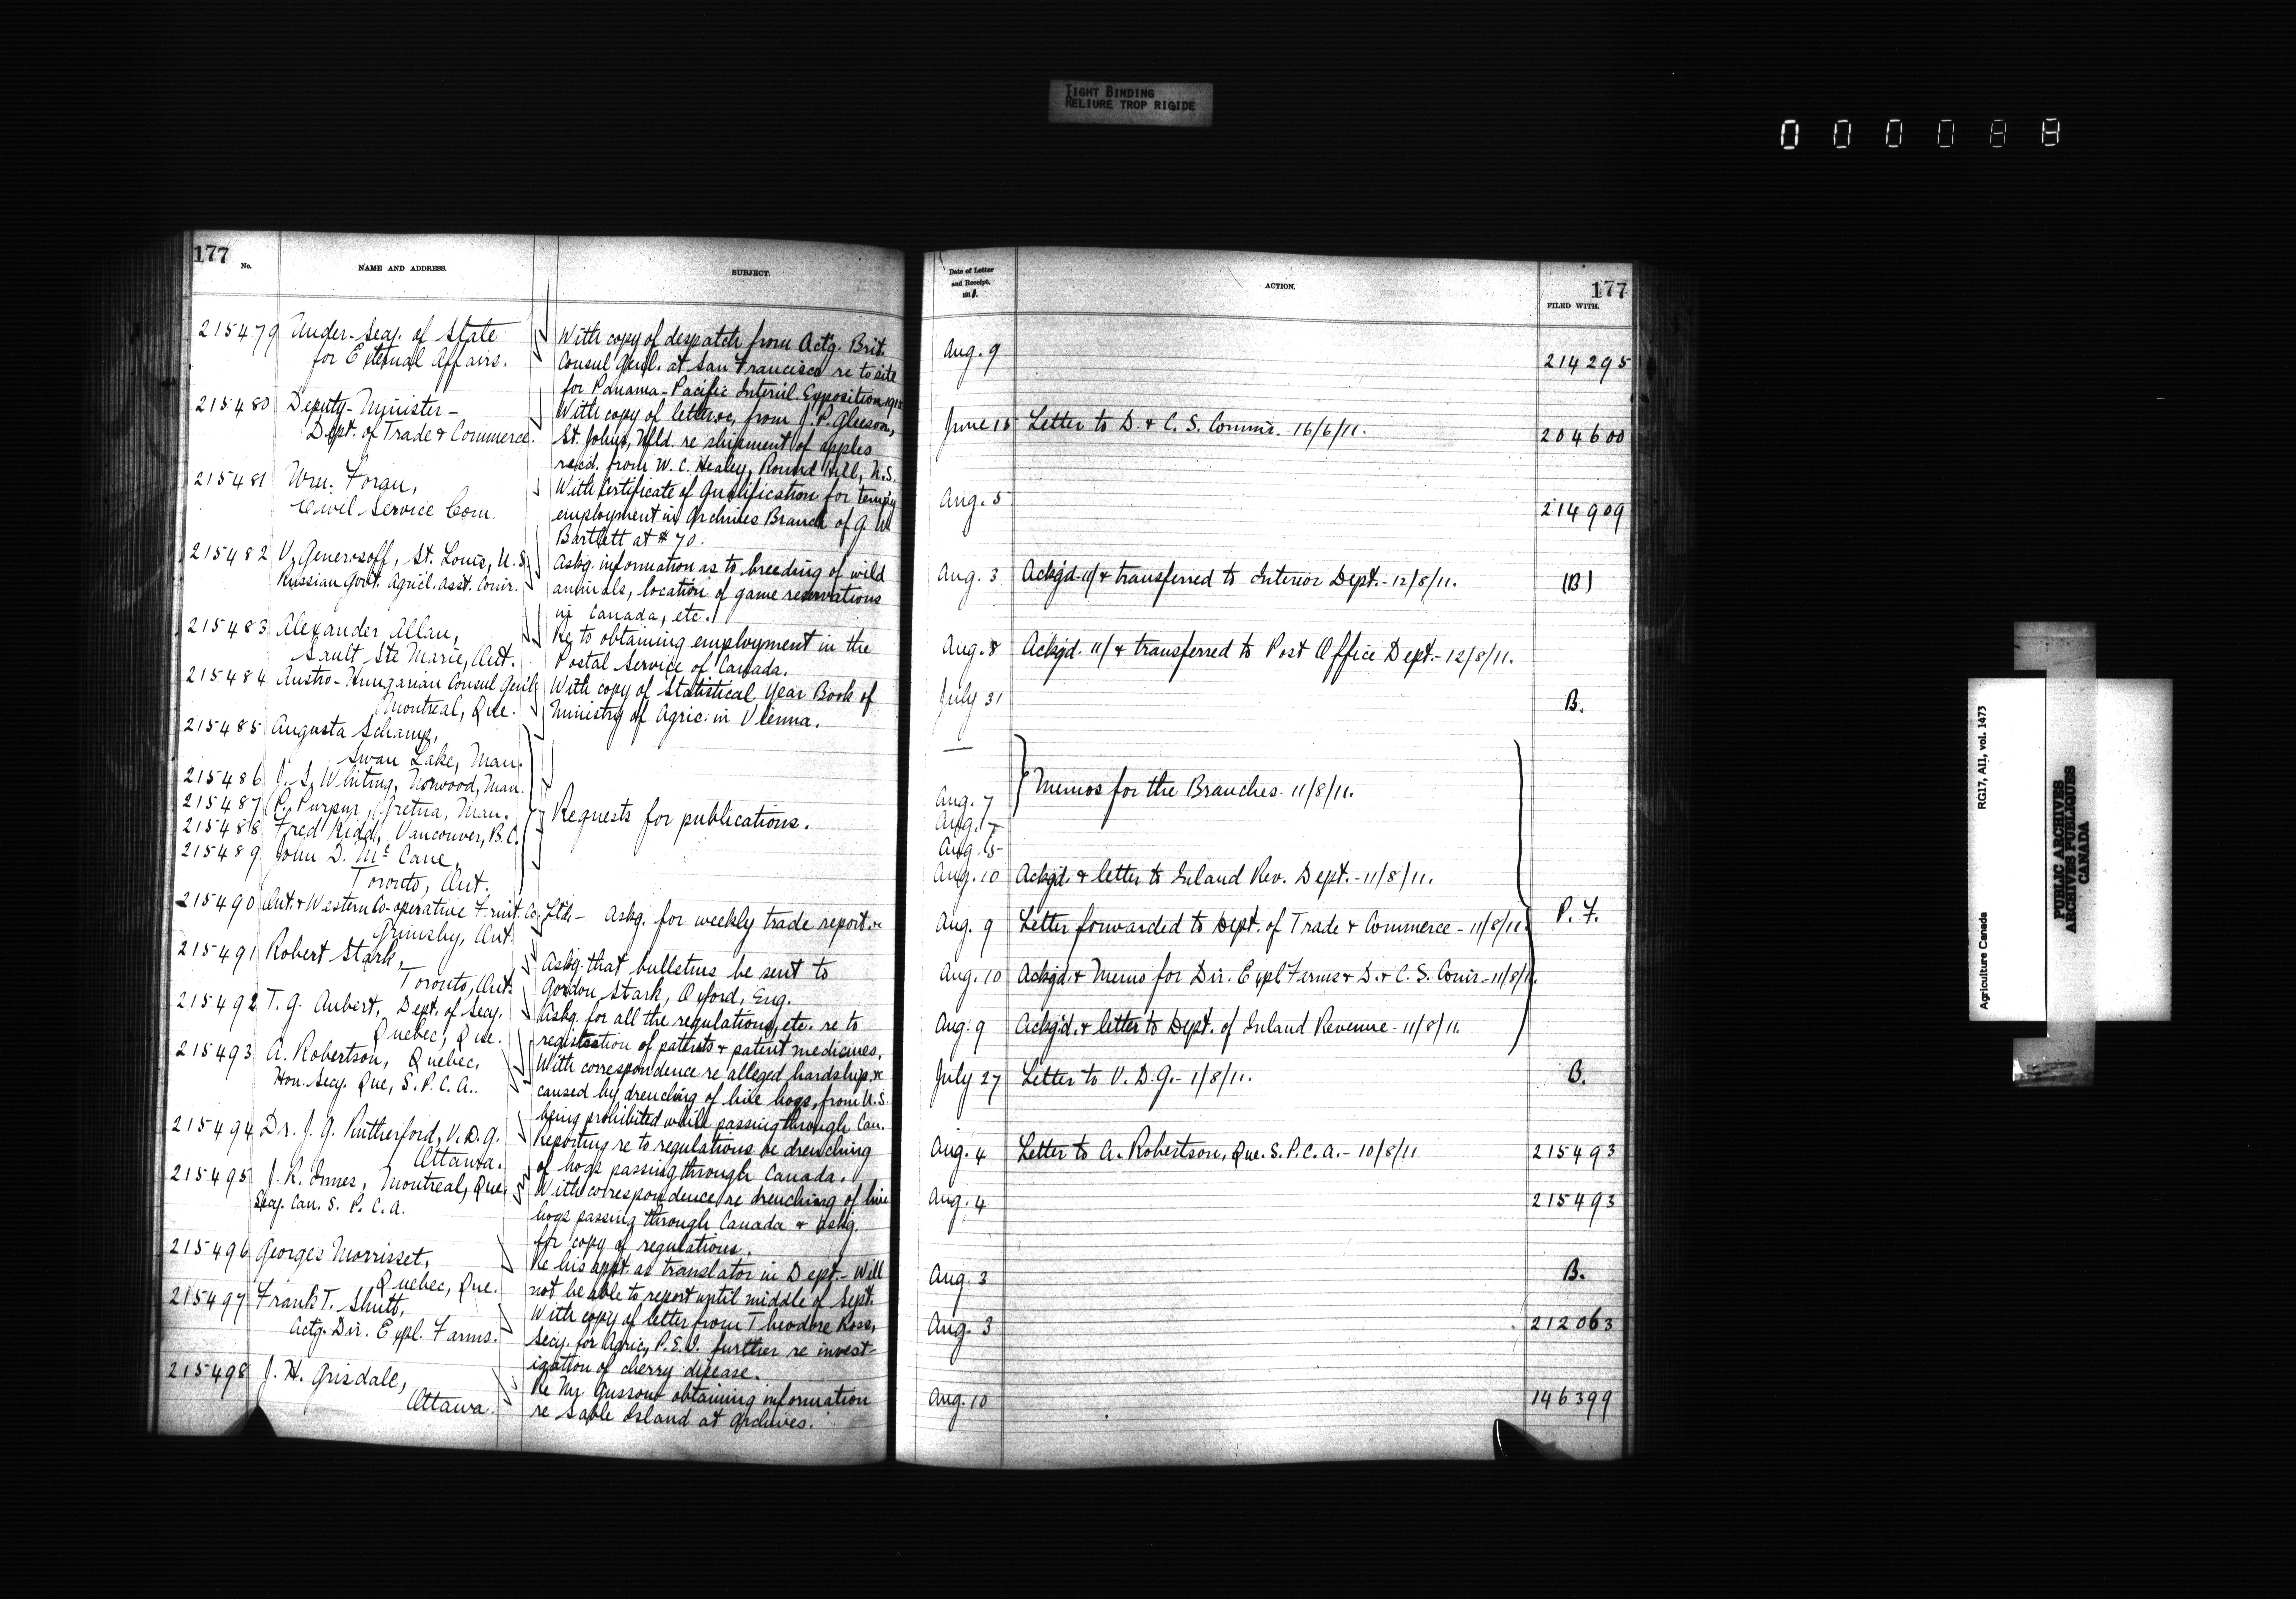 TIGHT BINDING
RELIURE TROP RIGIDE
0 0 0 0 8 8
177
No.
NAME AND ADDRESS.
SUBJECT.
215479 Under-Secy. of State
for External Affairs.
With copy of despatch from Actg. Brit.
Consul Genl. at San Francisco re to site
for Panama-Pacific Internl. Exposition 1915
215480 Deputy-Minister-
Dept. of Trade & Commerce.
With copy of letter from J. P. Gleeson,
St. Johns, Nfld. re shipment of apples
recd. from W. C. Healey, Round Hill, N.S.
215481 Wm. Foran,
Civil Service Com.
With Certificate of Qualification for tempy
employment in Archives Branch of G. W.
Bartlett at $70.
215482 V. Generosoff, St. Louis, U.S.
Russian Govt. Agricl. Asst. Comr.
Askg. information as to breeding of wild
animals, location of game reservations
in Canada, etc.
215483 Alexander Allan,
Sault Ste Marie, Ont.
Re to obtaining employment in the
Postal Service of Canada.
215484 Austro-Hungarian Consul Genl.
Montreal, Que.
With copy of Statistical Year Book of
Ministry of Agric. in Vienna.
215485 Augusta Schamp,
Swan Lake, Man.
215486 J. S. Whiting, Norwood, Man.
215487 P. Purpur, Gretna, Man.
215488 Fred Kidd, Vancouver, B.C.
215489 John D. McCane,
Toronto, Ont.
Requests for publications.
215490 Ont. & Western Co-operative Fruit Co. Ltd- Askg. for weekly trade report.
Grimsby, Ont.
215491 Robert Stark,
Toronto, Ont.
Askg. that bulletins be sent to
Gordon Stark, Oxford, Eng.
215492 T. G. Aubert, Dept. of Secy.
Quebec, Que.
Askg. for all the regulations, etc. re to
registration of patents & patent medicines.
215493 A. Robertson, Quebec,
Hon. Secy. Que, S.P.C.A.
With correspondence re alleged hardship
caused by drenching of live hogs, from U.S.
being prohibited while passing through Can.
215494 Dr. J. G. Rutherford, V.D.G.
Ottawa.
Reporting re to regulations re drenching
of hogs passing through Canada.
215495 J. R. Innes, Montreal, Que.
Secy. Can. S. P. C. A.
With correspondence re drenching of live
hogs passing through Canada & askg.
for copy of regulations.
215496 Georges Morrisset,
Quebec, Que.
Re his appt. as translator in Dept.- Will
not be able to report until middle of Sept.
215497 Frank T. Shutt,
Actg. Dir. Expl. Farms.
With copy of letter from Theodore Ross,
Secy. for Agric, P.E.I. further re invest-
igation of cherry disease.
215498 J. H. Grisdale,
Ottawa.
Re Mr. Gussow obtaining information
re Sable Island at Archives.
Date of Letter
and Receipt,
1911.
ACTION.
177
FILED WITH.
Aug. 9 214295
June 15 Letter to D. & C. S. Commr. -16/6/11. 204600
Aug. 5 214909
Aug. 3 Ackg'd. 11/ & transferred to Interior Dept.-12/8/11. (B)
Aug. 8 Ackg'd. 11/ & transferred to Post Office Dept.-12/8/11.
July 31 B.
—
Memos for the Branches- 11/8/11.
Aug. 7
Aug. 7
Aug. 5
Aug. 10 Ackg'd. & letter to Inland Rev. Dept.-11/8/11.
P. F.
Aug. 9 Letter forwarded to Dept. of Trade & Commerce - 11/8/11.
Aug. 10 Ackg'd & Memo for Dir. Expl Farms & D. & C. S. Comr.-11/8/11.
Aug. 9 Ackg'd. & letter to Dept. of Inland Revenue-11/8/11.
July 27 Letter to V. D. G.-1/8/11. B.
Aug. 4 Letter to A. Robertson, Que. S.P.C.A.-10/8/11 215493
Aug. 4 215493
Aug. 3 B.
Aug. 3 212063
Aug. 10 146399
Agriculture Canada
RG17, AII, vol. 1473
PUBLIC ARCHIVES
ARCHIVES PUBLIQUES
CANADA